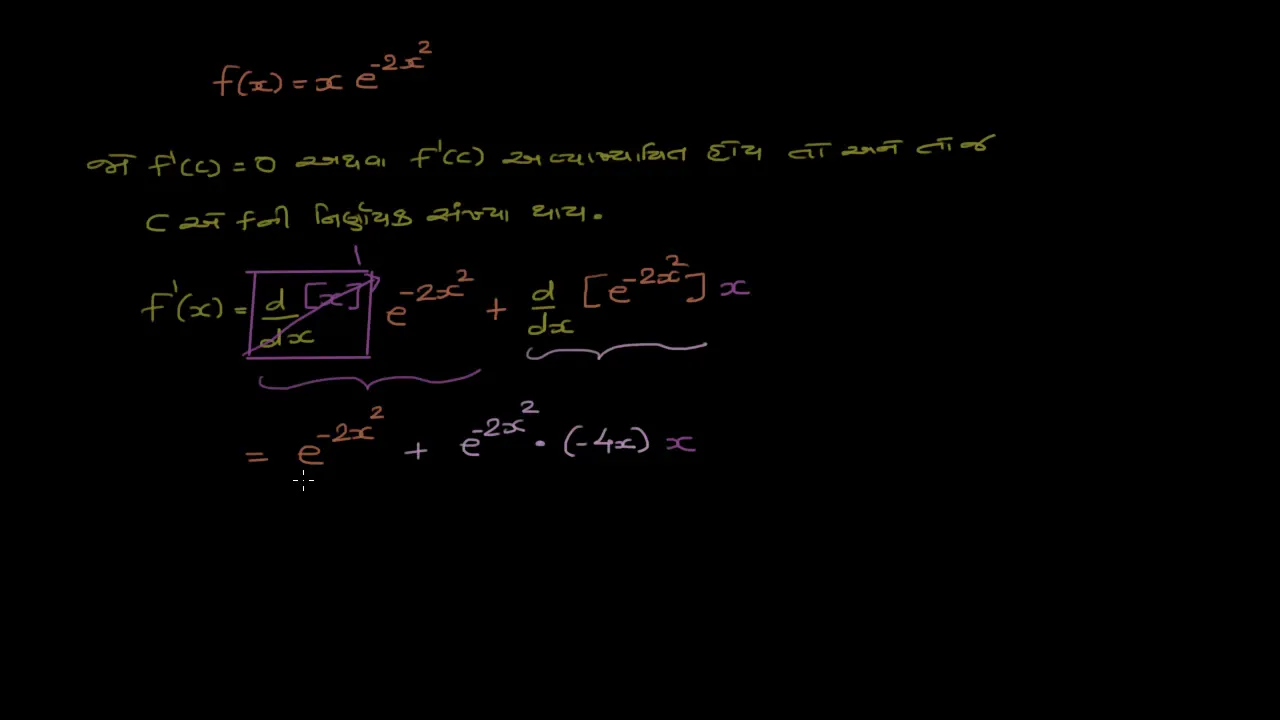 f(x) = x e^{-2x^2}
જો f'(c) = 0 અથવા f'(c) અવ્યાખ્યાયિત હોય તો અને તો જ
C એ f ની નિર્ણાયક સંખ્યા થાય.
f'(x) = d/dx [x] 1 e^{-2x^2} + d/dx [e^{-2x^2}] x
= e^{-2x^2} + e^{-2x^2} · (-4x) x